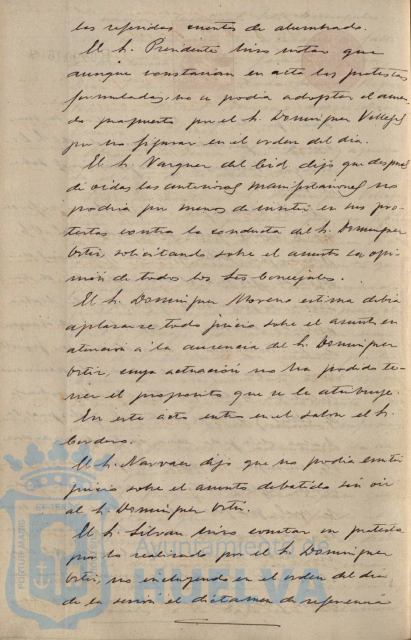 las referidas cuentas de alumbrado.
El Sr. Presidente hizo notar que
aunque constarían en acta las protestas
formuladas, no se podía adoptar el acuer-
do propuesto por el Sr. Domínguez Villegas
por no figurar en el orden del día.
El Sr. Vazquez del Cid dijo que después
de oidas las anteriores manifestaciones no
podría por menos de insistir en sus pro-
testas contra la conducta del Sr. Domínguez
Ortiz, solicitando sobre el asunto la opi-
nión de todos los Sres. Concejales.
El Sr. Domínguez Moreno estima debía
aplazarse todo juicio sobre el asunto en
atención a la ausencia del Sr. Domínguez
Ortiz, cuya actuación no ha podido te-
ner el propósito que se le atribuye.
En este acto entra en el salón el Sr.
Cordero.
El Sr. Narvaez dijo que no podía emitir
juicio sobre el asunto debatido sin oir
al Sr. Domínguez Ortiz.
El Sr. Silvan hizo constar su protesta
por lo realizado por el Sr. Domínguez
Ortiz, no incluyendo en el orden del día
de la sesión el dictamen de referencia
PORTUS MARIS
Ayuntamiento de
HUELVA